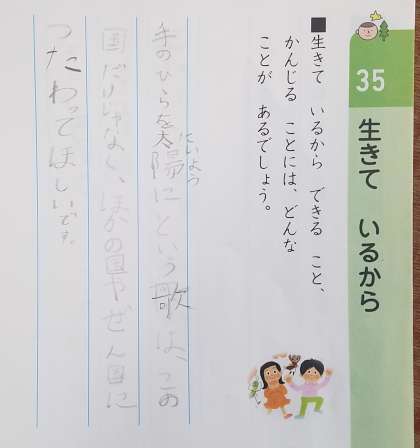 35
生きて いるから
■生きて いるから できる こと、
かんじる ことには、どんな
ことが あるでしょう。
手のひらを太陽にという歌は、この
にいよう
国だけじゃなく、ほかの国やぜん国に
つたわってほしいです。